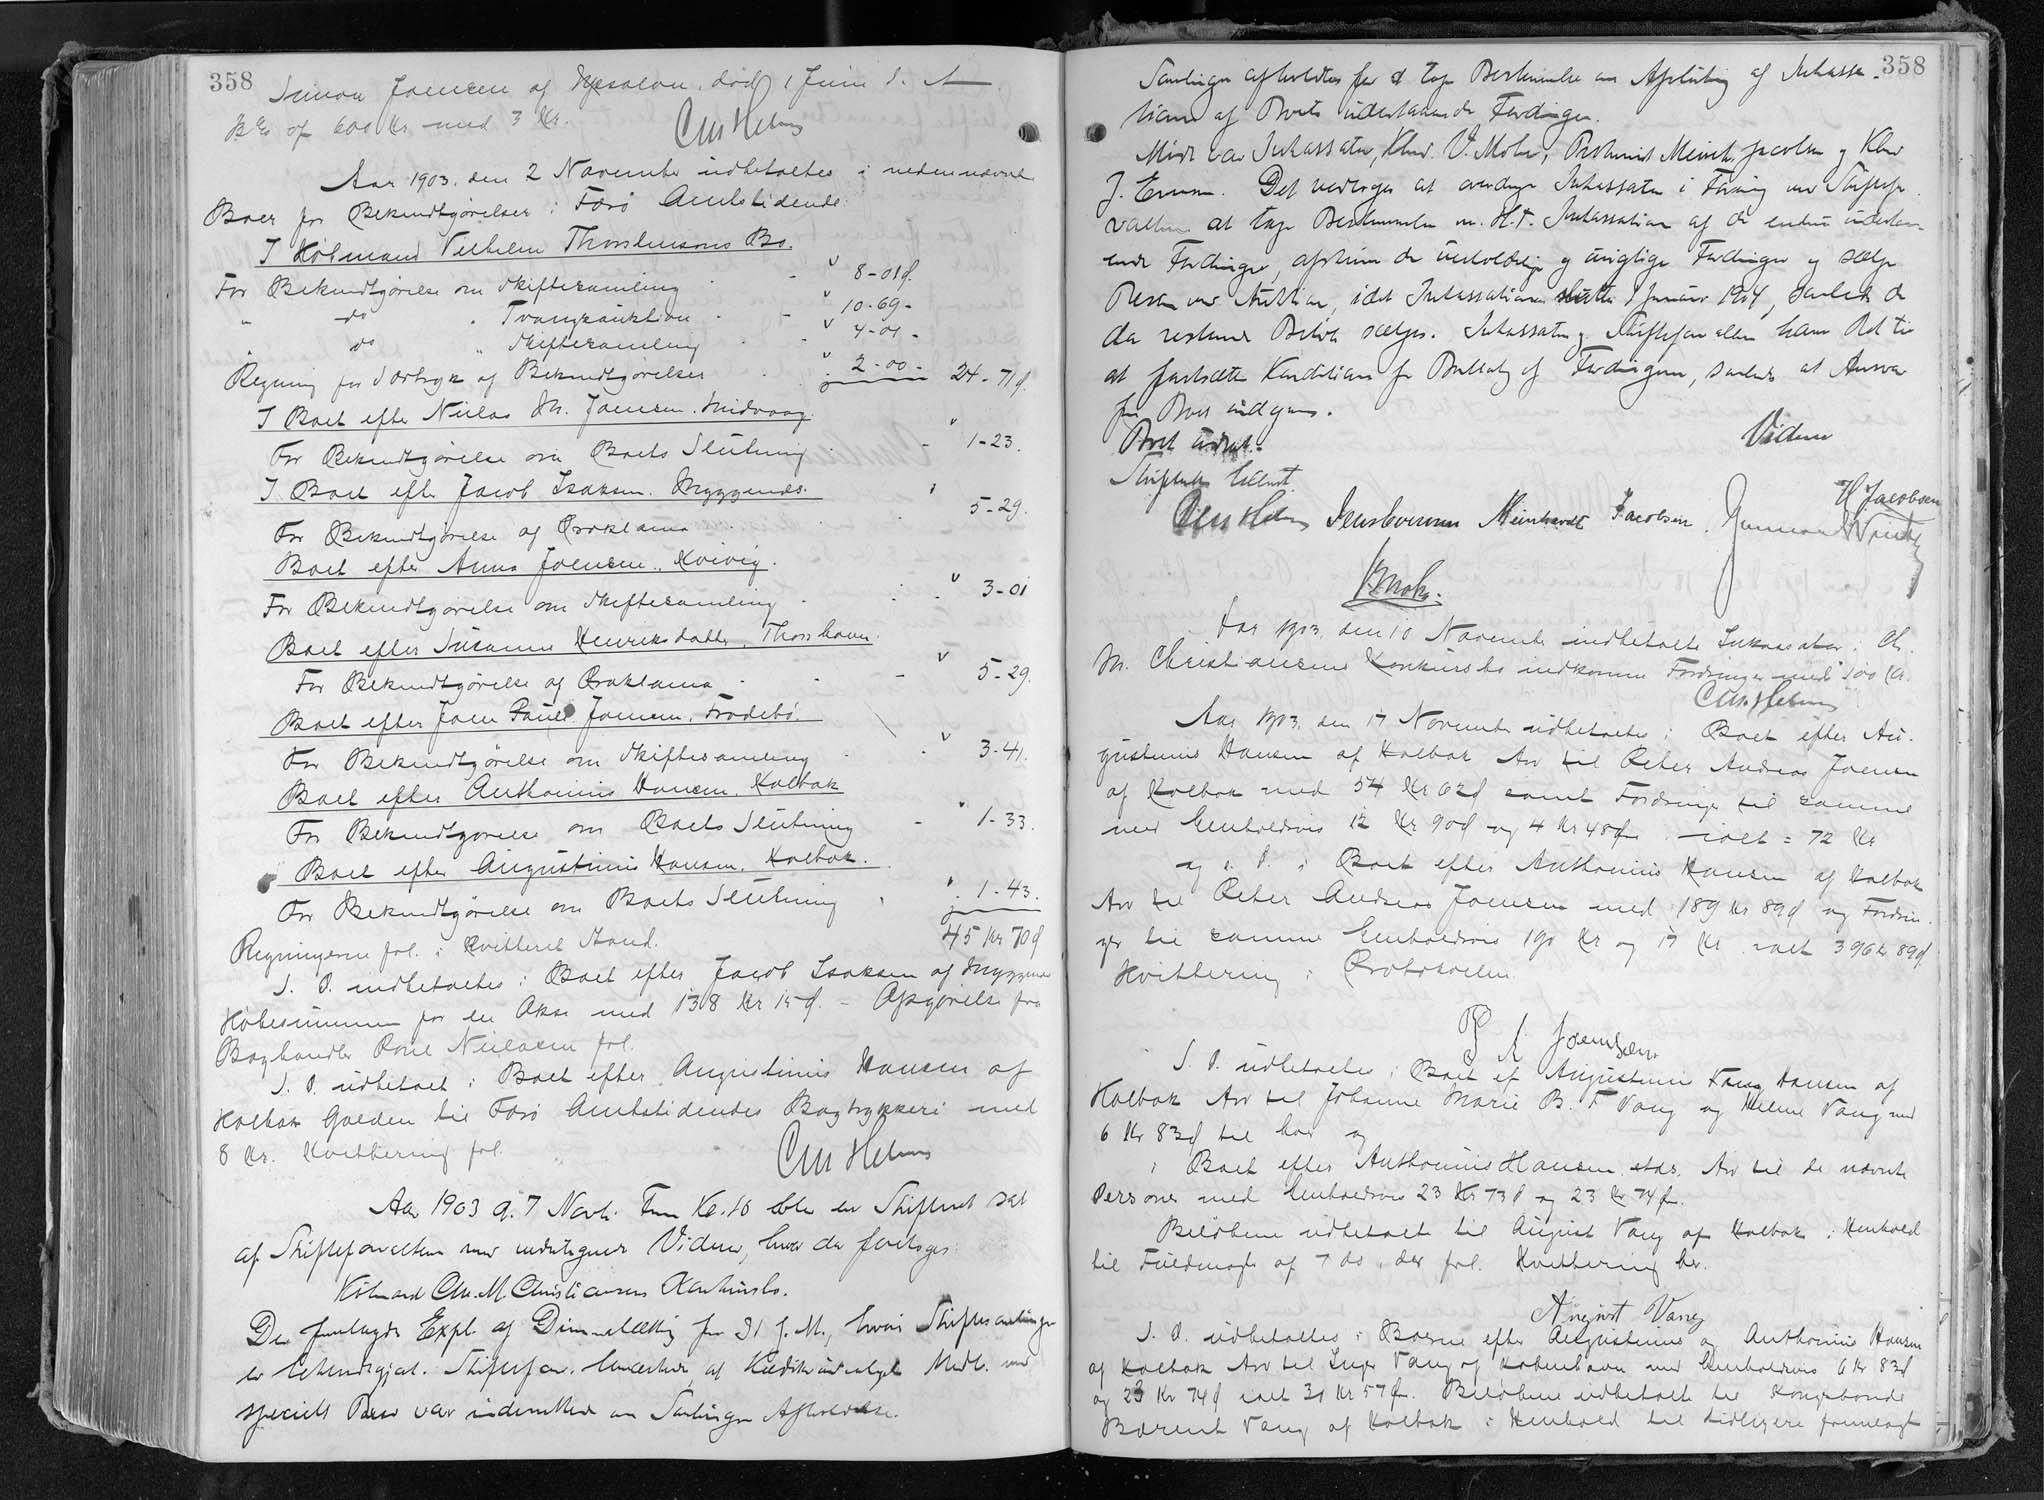 358
Simon Joensen af død 1 Juni d. A
af 600 Kr med 3 Kr.
Chr Helms
Aar 1903. den 2 November udbetaltes i nedennævnte
Boer for Bekendtgörelser i Færö Amtstidende
I Köbmand Vilhelm Thorsteinsons Bo.
For Bekendtgörelse om Skiftesamling - 8-01 ø.
" do " Tvangsauktion - 10-69 -
" do " Skiftesamling - 4-01 -
Regning for Særtryk af Bekendtgörelser 2-00 - 24-71 ø.
I Boet efter Niclas M. Joensen. Midvaag.
For Bekendtgörelse om Boets Slutning - 1-23.
I Boet efter Jacob Isaksen. Myggenæs.
For Bekendtgörelse af Proklama 5-29.
Boet efter Anna Joensen. Kvivig.
For Bekendtgörelse om Skiftesamling 3-01
Boet efter Susanne Henriksdatter, Thorshavn.
For Bekendtgörelse af Proklama - 5-29.
Boet efter Joen Joensen,
For Bekendtgörelse om Skiftesamling 3-41.
Boet efter Anthonius Hansen. Kolbak
For Bekendtgörelse om Boets Slutning - 1-33.
Boet efter Augustinus Hansen. Kolbak.
For Bekendtgörelse om Boets Slutning 1-43.
45 Kr 70 ø
Regningerne fol. i kvitteret Stand.
S. D. indbetaltes i Boet efter Jacob Isaksen af Myggenæs
Köbesummen for en Akse med 138 Kr 15 ø. - Afgörelse fra
Boghandler Poul Nielsen fol.
S. D. udbetalt i Boet efter Augustinus Hansen af
Kolbak Gælden til Færö Amtstidendes Bogtrykkeri med
8 Kr. Kvittering fol.
Chr Helms
Aar 1903 d. 7 Novb. Fm Kl. 10 blev en Skifteret sat
af Skifteforvalteren med undertegnede Vidner, hvor da foretoges:
Köbmand Chr. M. Christiansens Konkursbo.
Der fremlagdes Expl. af Dimmalætting for 31 f. M., hvori Skiftesamlingen
er bekendtgjort. Skifteforv. bemærkede, at Kreditorudvalgets Medl. med
speciell Brev var underrettede om Samlingens Afholdelse.
358
Samlingen afholdtes for at tage Bestemmelse om Afslutning af Inkassa-
tionen af Boets udestaaende Fordringer.
Mödt var Inkassator, Kbmd. V. Mohr, Meinh. Jacobsen og Kbmd
J. Evensen. Det vedtoges at overdrage Inkassator i Forening med Skiftefor-
valteren at tage Bestemmelse m. H. t. Inkassation af de endnu udestaa-
ende Fordringer, afskrive de uerholdelige og uvigtige Fordringer og sælge
Resten ved Auktion, idet Inkassationen slutter 1 Januar 1904, saaledes de
da resterende Belöb sælges. Inkassator og Skifteforvalteren have Ret til
at fastsætte Konditioner for Bortsalg af Fordringerne, saaledes at Ansvar
for Boet undgaas.
Boet udsat.
Skifteretten hævet.
Vidner
Chr Helms Jens Evensen Meinhardt Jacobsen H Jacobsen
V Mohr.
Aar 1903. den 10 November indbetalte Inkassator i Chr.
M. Christiansens Konkursbo indkomne Fordringer med 500 Kr.
Chr. Helms
Aar 1903. den 17 November udbetaltes i Boet efter Au-
gustinus Hansen af Kolbak Arv til Peter Andreas Joensen
af Kolbak med 54 Kr 62 ø samt Fordringer til samme
med henholdsvis 12 Kr 90 ø og 4 Kr 48 ø. ialt = 72 Kr
og s. D. i Boet efter Anthonius Hansen af Kolbak
Arv til Peter Andreas Joensen med 189 Kr 89 ø og Fordrin-
ger til samme henholdsvis 190 Kr og 17 Kr ialt 396 Kr 89 ø.
Kvittering i Protokollen
P A Joensen
S. D. udbetaltes i Boet ef Augustinus Hansen af
Kolbak Arv til Johanne Marie B. F Vang og Helene Vang med
6 Kr 83 ø til hver og
i Boet efter Anthonius Hansen Arv til de nævnte
Personer med henholdsvis 23 Kr 73 ø og 23 Kr 74 ø.
Belöbene udbetalt til August Vang af Kolbak i Henhold
til Fuldmagt af 7 ds. der fol. Kvittering her.
August Vang
S. D. udbetaltes i Boerne efter Augustinus og Anthonius Hansen
af Kolbak Arv til Inger Vang af Köbenhavn med henholdsvis 6 Kr 83 ø
og 23 Kr 74 ø ialt 30 Kr 57 ø. Belöbene udbetalt til Kongsbonde
Berent Vang af Kolbak i Henhold til tidligere fremlagt